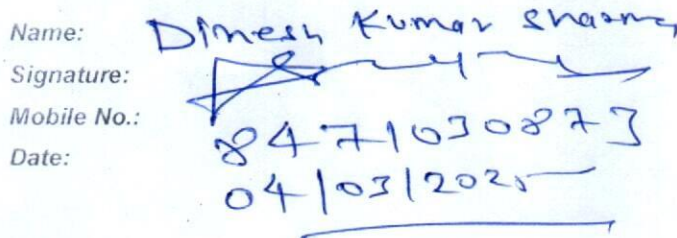 Name: Dinesh Kumar Sharma
Signature:
Mobile No.: 8471030873
Date: 04/03/2025